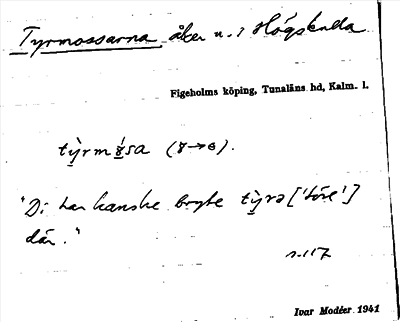 Tyrmossarna åker n. i Högskulla
Figeholms köping, Tunaläns hd, Kalm. l.
tỳrmɣ́sa (ɣ→ɵ).
"Di har kanske brytt tỳrə ['töre']
där."
s. 117
Ivar Modéer 1941